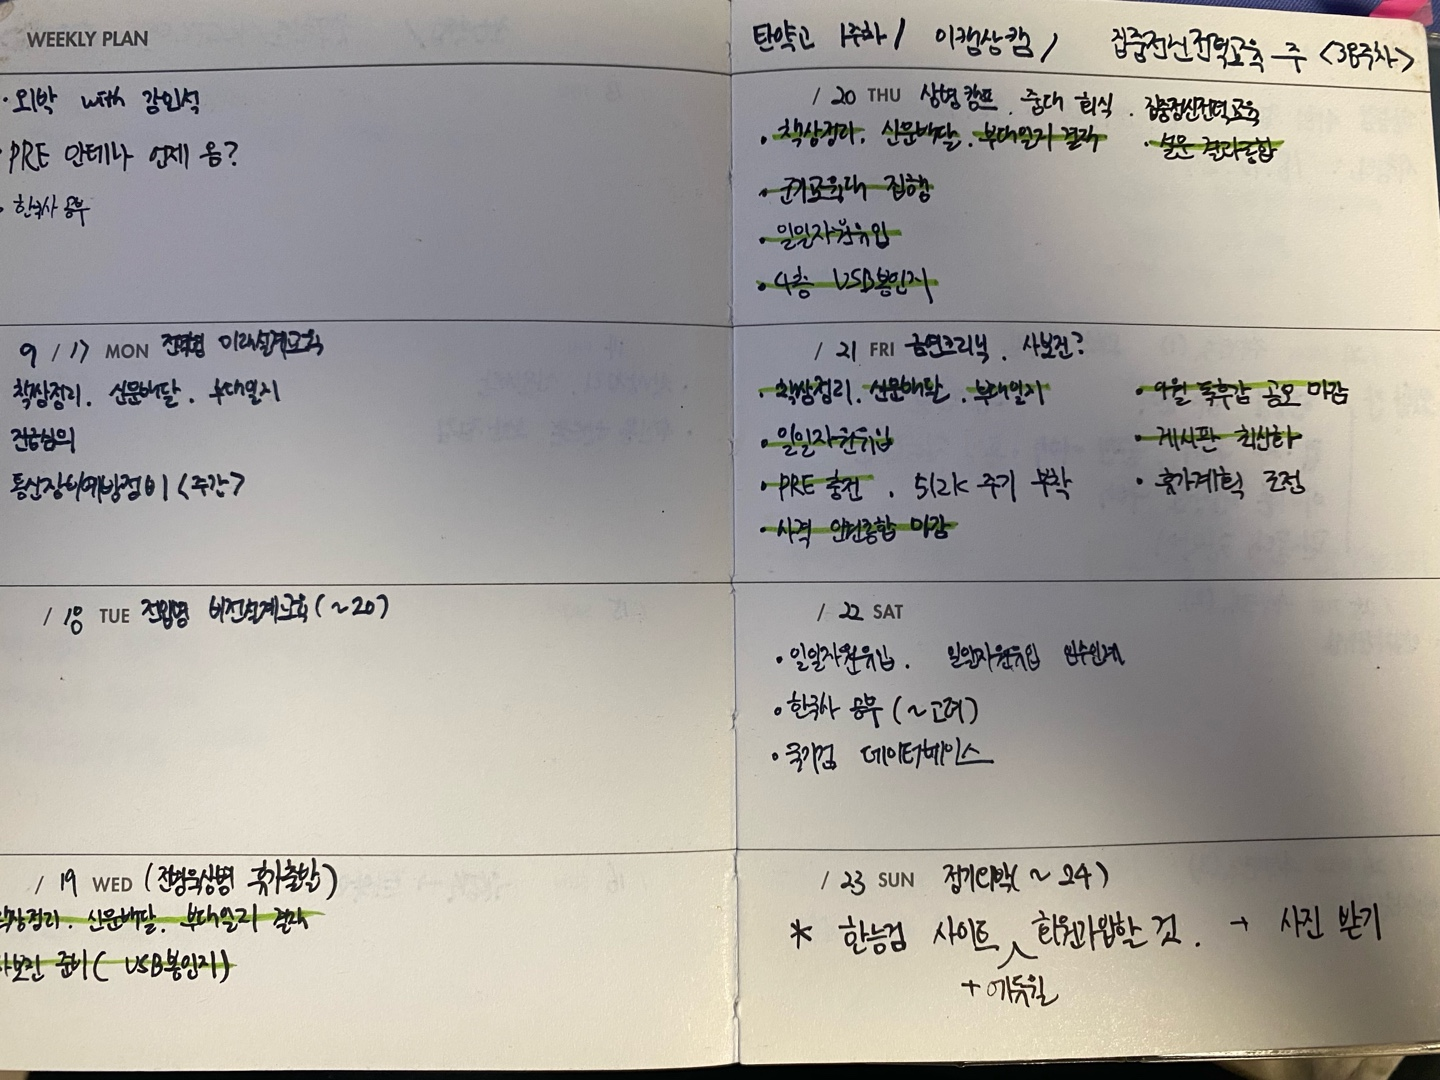 WEEKLY PLAN
· 외박 with 강인석
· PRE 안테나 언제 옴?
· 한국사 공부
9 / 17 MON 전역병 미래설계교육
책상정리. 신문배달. 부대일지
진급심의
통신장비예방정비 <주간>
/ 18 TUE 전입병 비전설계교육 (~20)
/ 19 WED ( 휴가출발)
책상정리. 신문배달. 부대일지 결재
사보진 준비 ( USB봉인지)
탄약고 1주차 / 이캠상캠 / 집중정신전력교육 주 <38주차>
/ 20 THU 상병캠프. 중대 회식. 집중정신전력교육
· 책상정리. 신문배달. 부대일지 결재 · 설문 결과종합
· 군기교육대 집행
· 일일자원유입
· 4층 USB봉인지
/ 21 FRI 금연클리닉. 사보진?
· 책상정리. 신문배달. 부대일지 · 9월 독후감 공모 마감
· 일일자원유입 · 게시판 최신화
· PRE 충전. 512K 주기 부착 · 휴가계획 조정
· 사격 인원종합 마감
/ 22 SAT
· 일일자원유입. 일일자원유입 인수인계
· 한국사 공부 (~고려)
· 국기검 데이터베이스
/ 23 SUN 정기외박 (~24)
* 한능검 사이트 회원가입할 것. → 사진 받기
+ 에듀윌